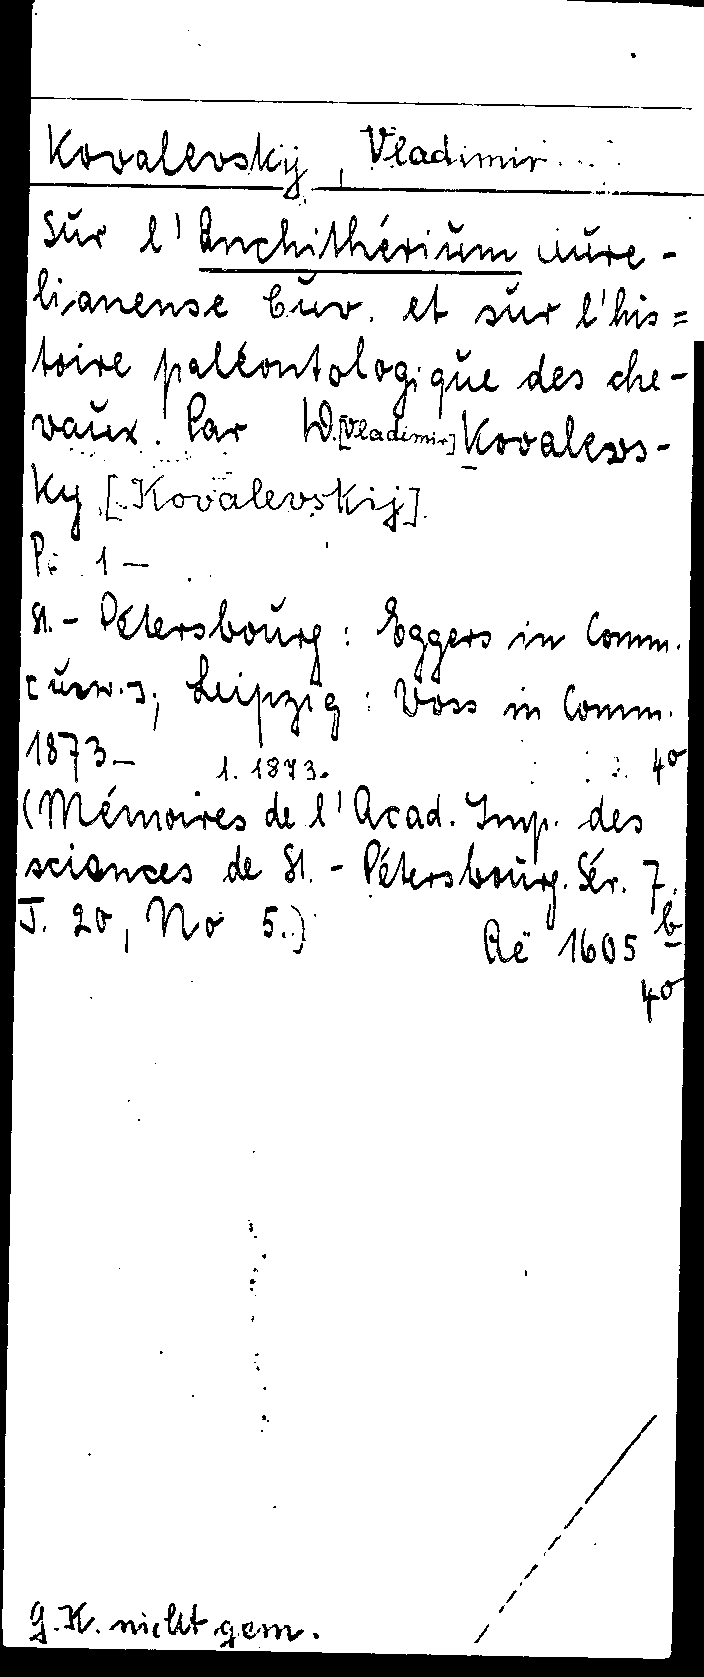 Kovalevskij, Vladimir
Sur l'Anchithérium aure-
lianense Cuv. et sur l'his=
toire paléontologique des che-
vaux. Par W. [Vladimir] Kovalews-
ky [Kovalevskij].
P. 1-
St.-Pétersbourg: Eggers in Comm.
[usw.]; Leipzig: Voss in Comm.
1873- 1. 1873. 4°
(Mémoires de l'Acad. Imp. des
sciences de St.-Pétersbourg. Sér. 7.
T. 20, No 5.)
Aë 1605 b
4°
G.K. nicht gem.